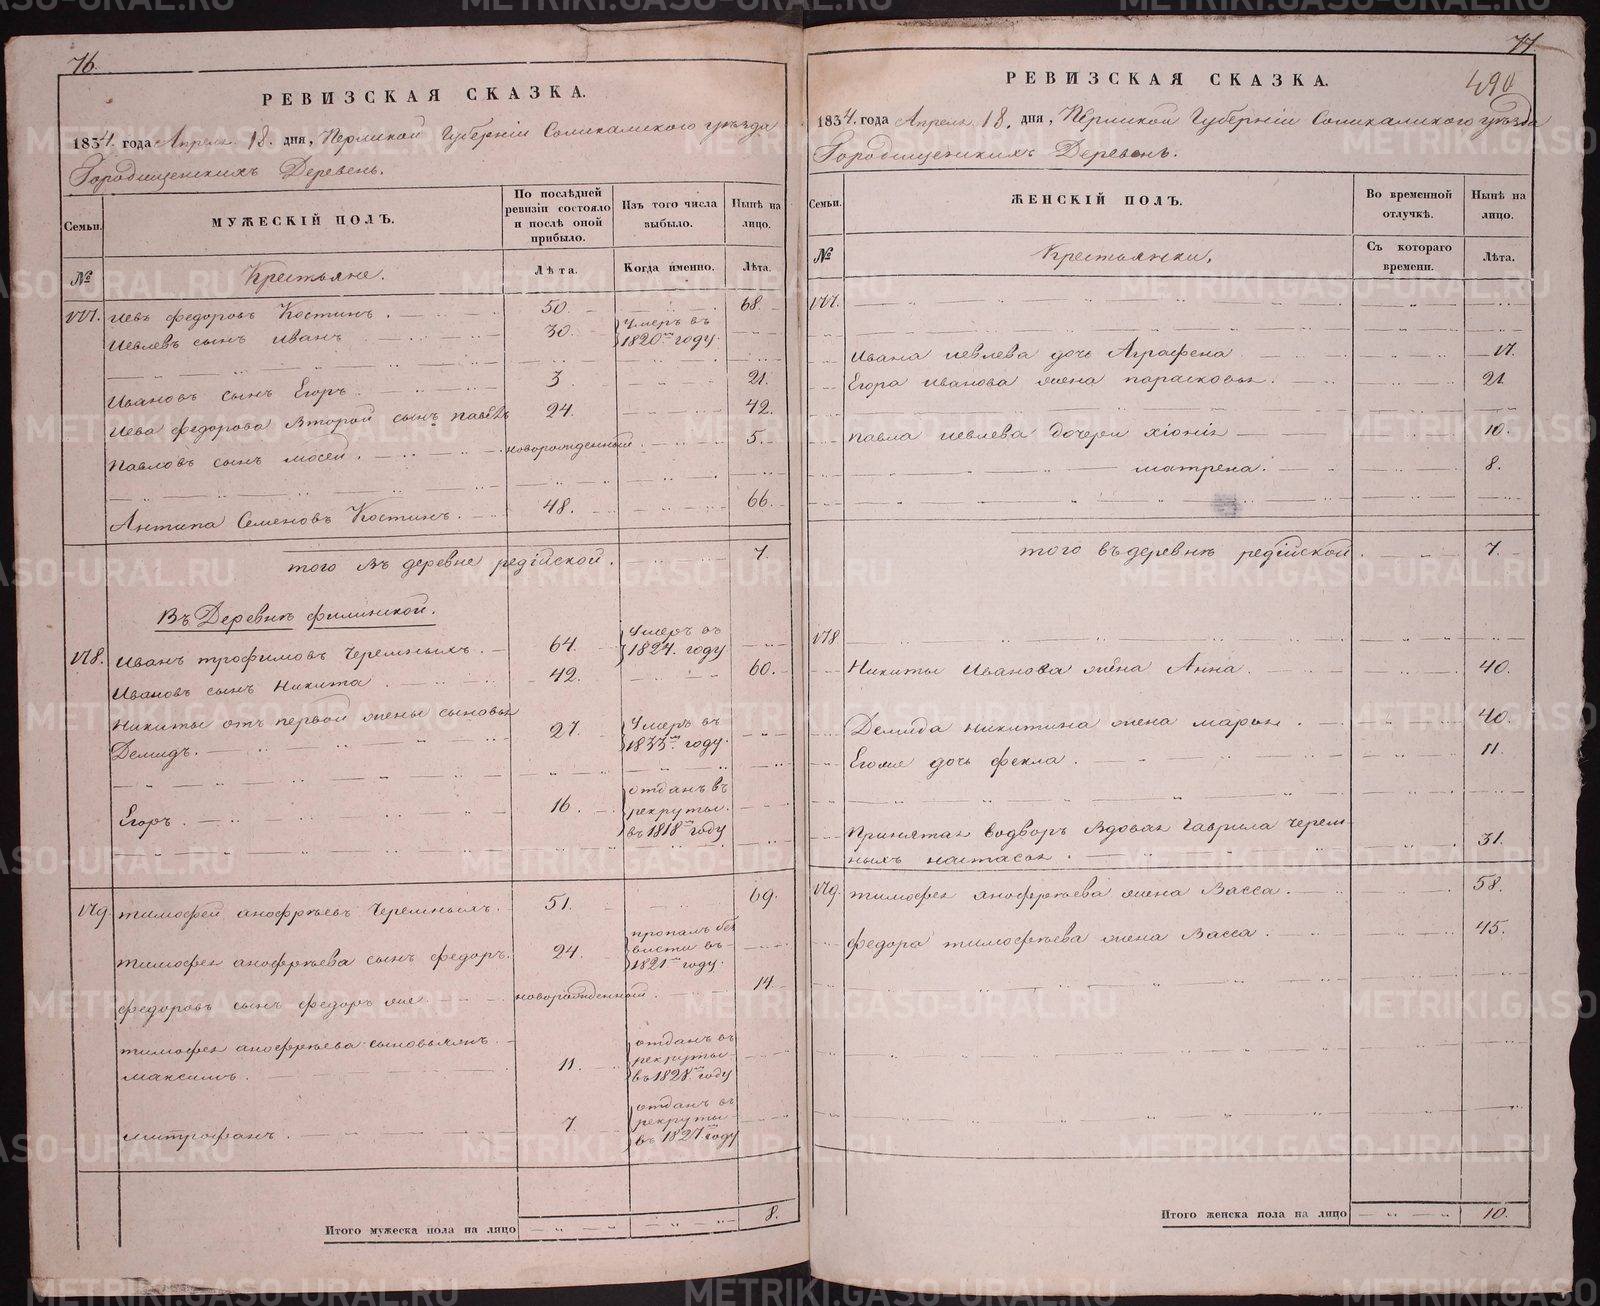 76.
РЕВИЗСКАЯ СКАЗКА.
1834. года Апреля 18. дня, Пермской Губернiи Соликамского уезда
Городищенскихъ Деревень.
Семьи.
МУЖЕСКIЙ ПОЛЪ.
По послѣдней ревизiи состояло и послѣ оной прибыло.
Изъ того числа выбыло.
Нынѣ на лицо.
№
Крестьяне.
Лѣта.
Когда именно.
Лѣта.
177. Иевъ федоровъ Костинъ. 50. 68.
Иевлевъ сынъ иванъ 30. Умеръ въ 1820м году.
Ивановъ сынъ Егоръ. 3. 21.
Иева федорова Второй сынъ павелъ 24. 42.
Павловъ сынъ мосей. новорожденный. 5.
Антипа Семеновъ Костинъ. 48. 66.
того въ деревне редiйской. 7.
Въ Деревнѣ филинской.
178. Иванъ трофимовъ Черемныхъ. 64. Умеръ въ 1824. году
Ивановъ сынъ Никита 42. 60.
Никиты отъ первой жены сыновья
Демидъ. 27. Умеръ въ 1833м. году.
Егоръ. 16. отданъ въ рекруты. въ 1818м году
179. тимофей анофрѣевъ Черемныхъ. 51. 69.
тимофея анофрѣева сынъ федоръ. 24. пропалъ без вѣсти въ 1821м году.
федоровъ сынъ федоръ же. новорожденный. 14.
тимофея анофрѣева сыновьямъ
максимъ. 11. отданъ въ рекруты въ 1828м году
митрофанъ. 7. отданъ въ рекруты въ 1827м году
Итого мужеска пола на лицо 8.
77
490
РЕВИЗСКАЯ СКАЗКА.
1834. года Апреля 18. дня, Пермской Губернiи Соликамского уезда
Городищенскихъ Деревень.
Семьи.
ЖЕНСКIЙ ПОЛЪ.
Во временной отлучкѣ.
Нынѣ на лицо.
№
Крестьянки.
Съ котораго времени.
Лѣта.
177.
Ивана иевлева дочь Аграфена 17.
Егора иванова жена парасковья. 21
павла иевлева дочери хiонiя 10.
матрена. 8.
того въ деревнѣ редiйской. 7.
178
Никиты Иванова жена Анна. 40.
Демида никитина жена марья. 40.
Егоже дочь фекла. 11.
Принятая водворъ вдовая гаврила черем-
ныхъ настасья. 31.
179. тимофея анофрѣева жена Васса. 58.
федора тимофѣева жена Васса. 45.
Итого женска пола на лицо 10.
METRIKI.GASO-URAL.RU